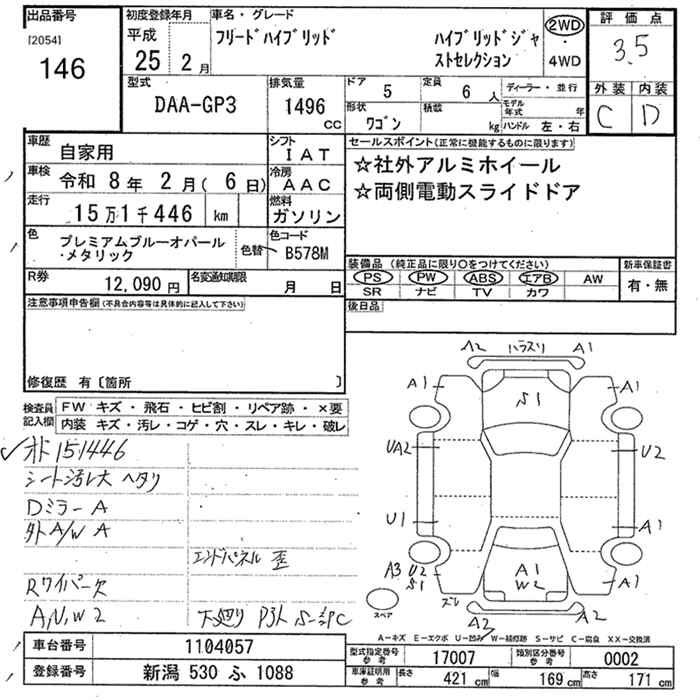 出品番号
[2054]
146
初度登録年月
平成
25 2月
車名・グレード
フリードハイブリッド
ハイブリッドジャ
ストセレクション
2WD
・
4WD
評価点
3.5
外装 内装
C D
型式
DAA-GP3
排気量
1496
CC
ドア
5
定員
6 人
形状
ワゴン
積載
kg
ディーラー・並行
モデル年式 年
ハンドル 左・右
車歴
自家用
シフト
IAT
車検
令和 8年 2月(6日)
冷房
AAC
走行
15万1千446 km
燃料
ガソリン
色
プレミアムブルーオパール
・メタリック
色替
色コード
B578M
R券
12,090円
名変通知期限
月 日
セールスポイント(正常に機能するものに限ります)
☆社外アルミホイール
☆両側電動スライドドア
装備品(純正品に限り○をつけてください)
PS PW ABS エアB AW
SR ナビ TV カワ
新車保証書
有・無
後日品
注意事項申告欄(不具合内容等は具体的に記入して下さい)
修復歴 有〔箇所 〕
検査員
記入欄
FW キズ・飛石・ヒビ割・リペア跡・×要
内装 キズ・汚レ・コゲ・穴・スレ・キレ・破レ
オド 151446
シート汚レ大 ヘタリ
Dミラー A
外A/W A
エンドパネル 歪
Rワイパー欠
A,N,W2
下廻り
A2 A1
A1 S1 A1
UA2 U2
U1 A1
A3 U2
S1
A1
W2
A1
ズレ
スペア
A2 A2
A−キズ E−エクボ U−凹み W−補修跡 S−サビ C−腐食 XX−交換済
車台番号
1104057
登録番号
新潟 530 ふ 1088
型式指定番号
参考
17007
類別区分番号
参考
0002
車庫証明用
参考
長さ
421 cm
幅
169 cm
高さ
171 cm